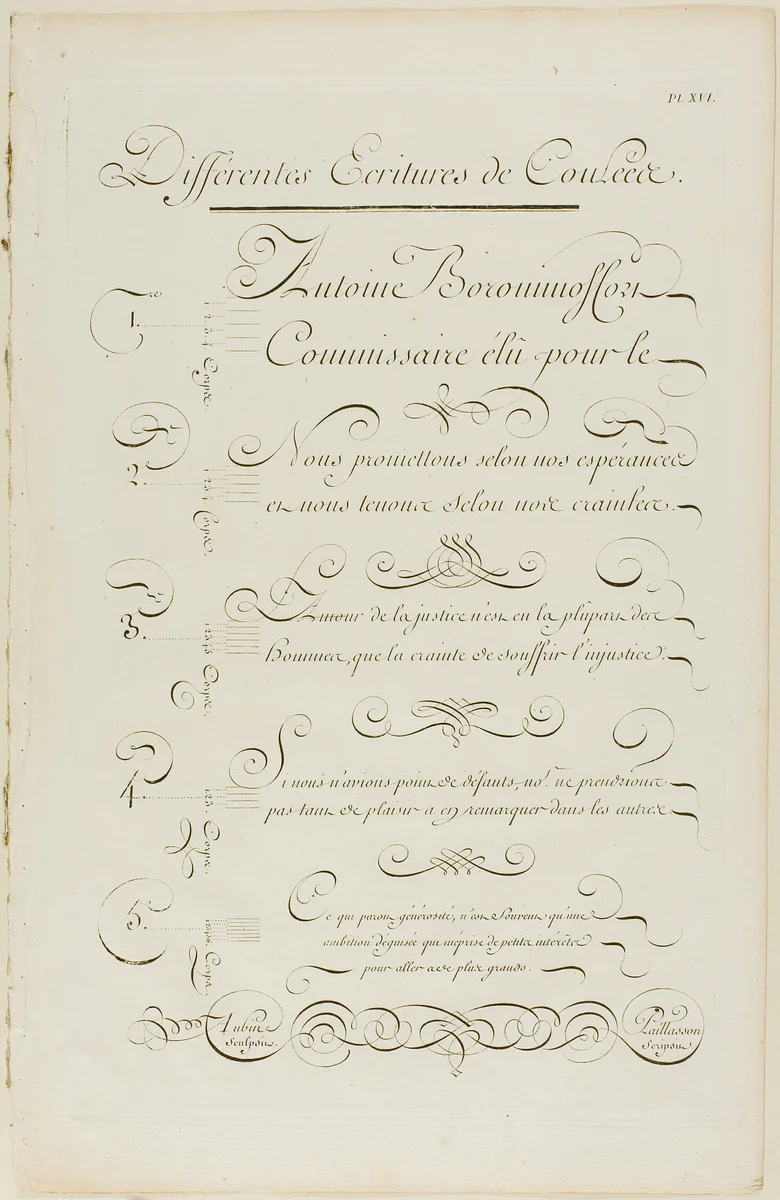 Pl. XVI.
Différentes Ecritures de Coulées.
1.re
1 2 3 4 Corps.
Antoine
Commissaire élû pour le
2.
1 2 3 4 Corps.
Nous promettons selon nos espérances
et nous tenons selon nos craintes.
3.
Corps.
L'Amour de la justice n'est en la plûpart des
hommes, que la crainte de souffrir l'injustice.
4.
1 2 3. Corps.
Si nous n'avions point de défauts, no.s ne prendrions
pas tant de plaisir a en remarquer dans les autres
5.
Corps.
Ce qui paroit générosité, n'est Souvent qu'une
ambition déguisée qui méprise de petits intérêts
pour aller a de plus grands.
Aubin
Sculpsit.
Paillasson
Scripsit.